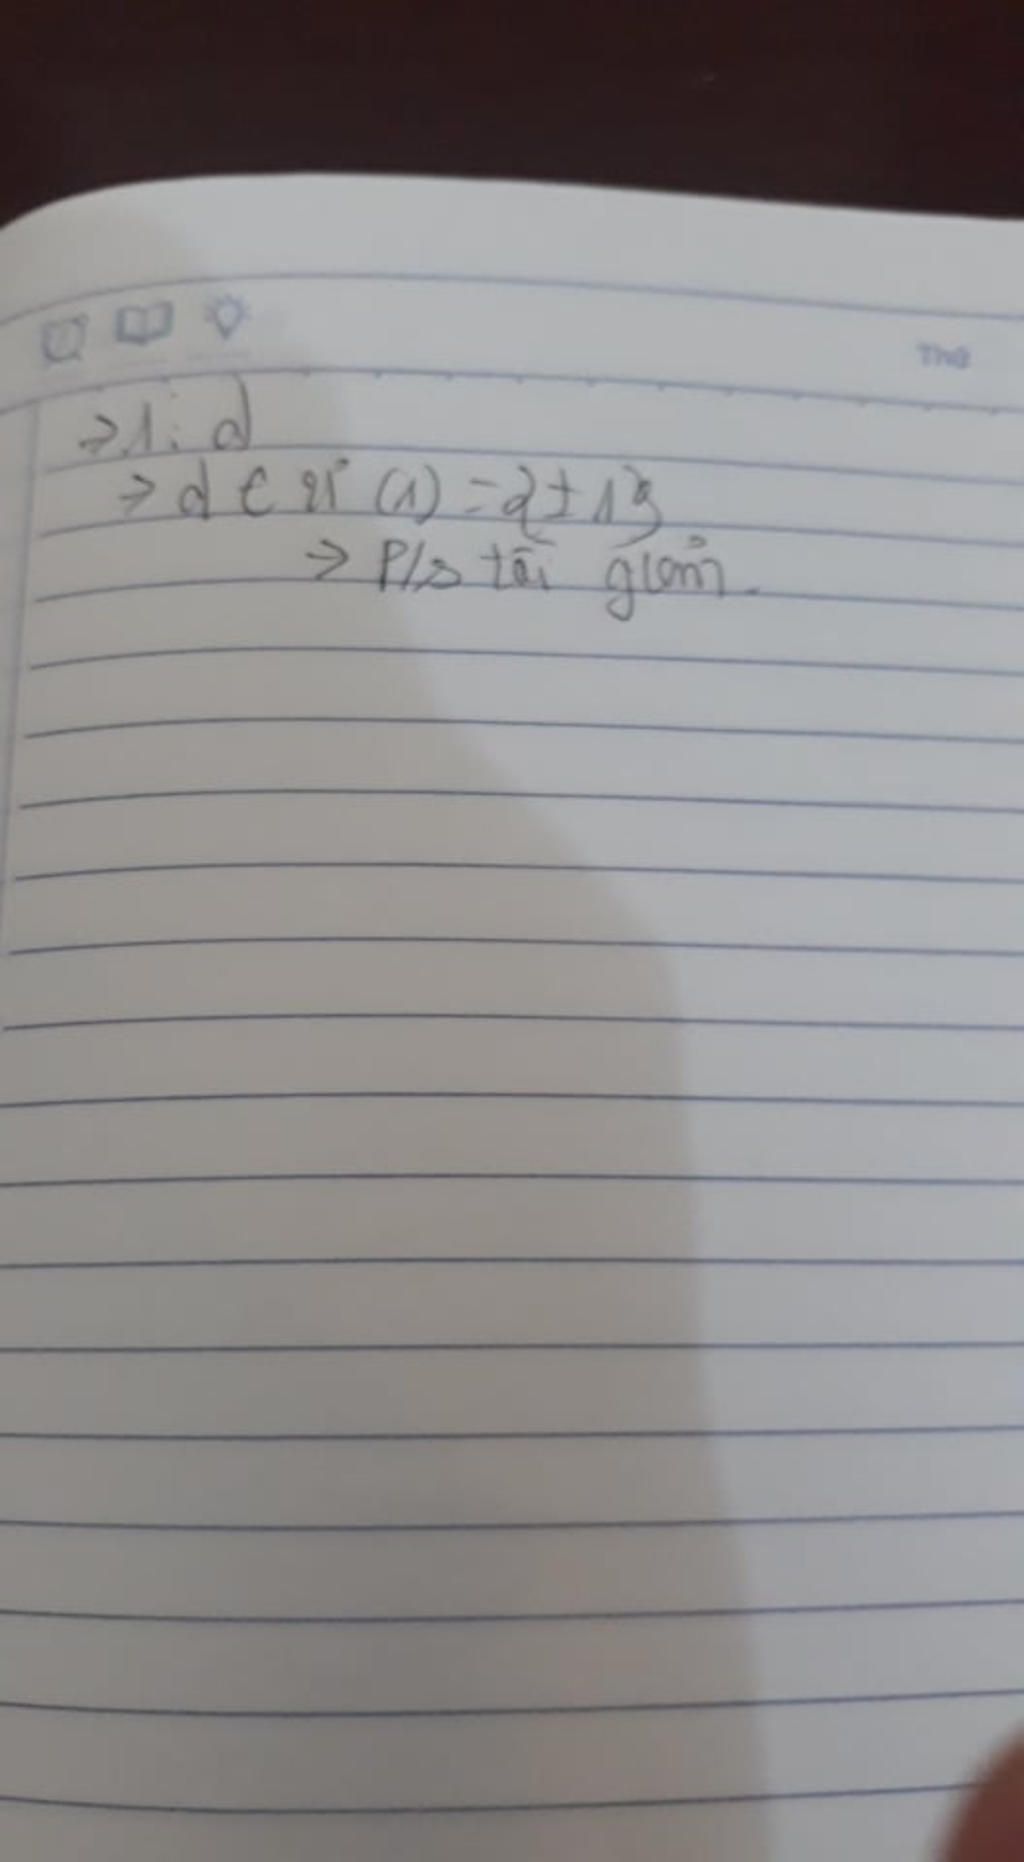 Thứ
⇒ 1 ⋮ d
⇒ d ∈ Ư (1) = {±1}
⇒ P/s tối giản.